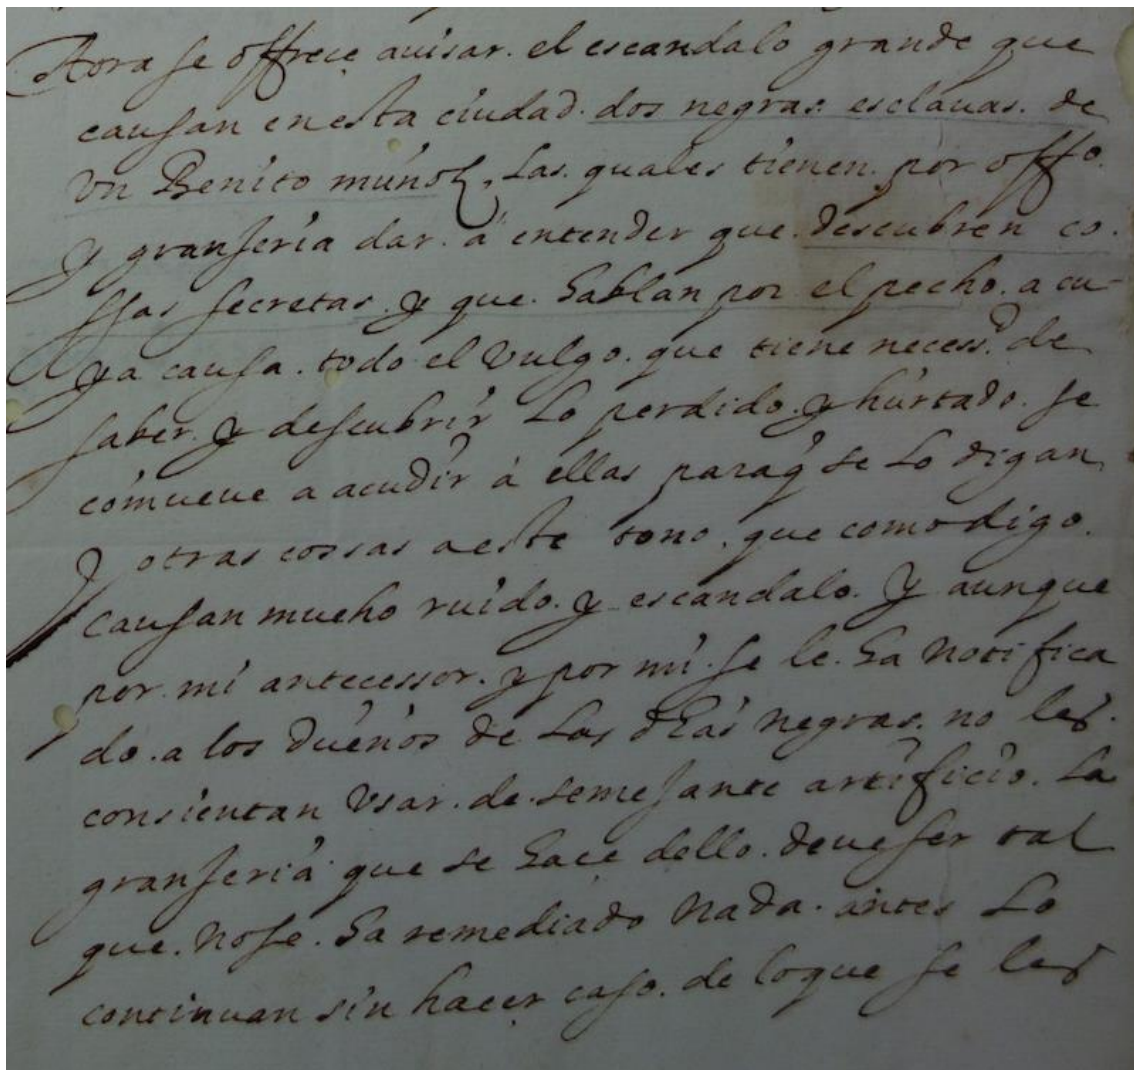 Aora se offrece auisar. el escandalo grande que
causan en esta ciudad. dos negras. esclauas. de
vn Benito muñoz, las. quales tienen. por offo.
y granjeria dar. á entender que. descubren co-
ssas secretas. y que. hablan por el pecho. a cu-
ya causa. todo el vulgo. que tiene necessd. de
saber. y descubrir lo perdido. y hurtado. se
comueue a acudir á ellas paraq̃ se lo digan,
y otras cossas a este tono. que como digo.
causan mucho ruido. y escandalo. y aunque
por. mi antecessor. y por mi. se le. ha notifica
do. a los dueños de las dhas negras. no les.
consientan vsar. de. semejante artificio. la
granjeria que se hace dello. deue ser tal
que. no se. ha remediado nada. antes lo
continuan sin hacer caso. de lo que se les